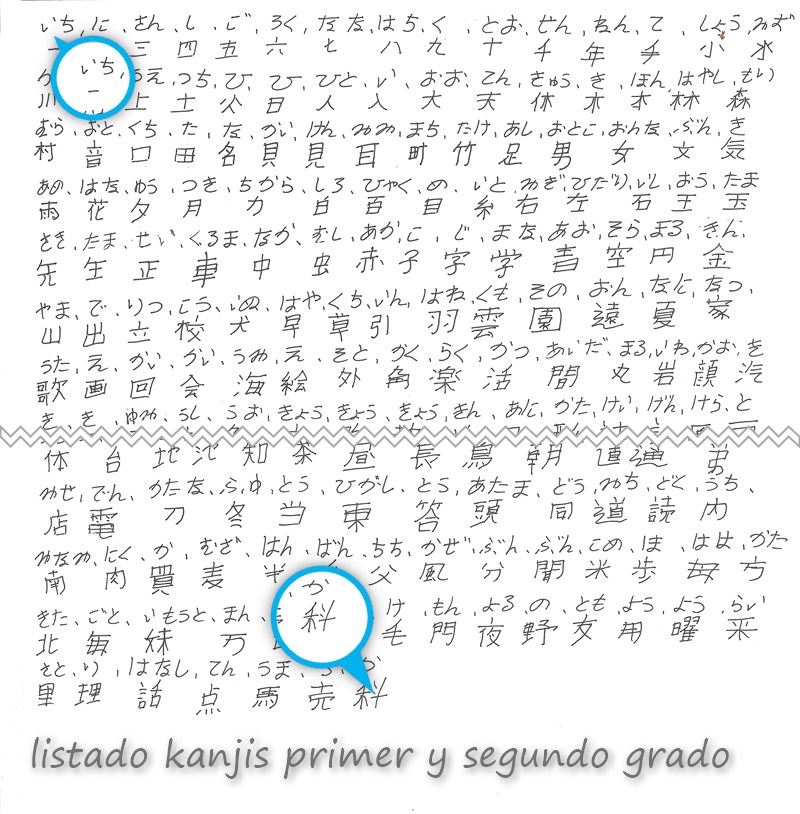 いち、に、さん、し、ご、ろく、なな、はち、く、とお、せん、ねん、て、しょう、みず
三 四 五 六 七 八 九 十 千 年 手 小 水
いち、うえ、つち、ひ、ひ、ひと、い、おお、てん、きゅう、き、ほん、はやし、もり
川 一 上 土 火 日 人 入 大 天 休 木 本 林 森
むら、おと、くち、た、な、かい、けん、みみ、まち、たけ、あし、おとこ、おんな、ぶん、き
村 音 口 田 名 貝 見 耳 町 竹 足 男 女 文 気
あめ、はな、ゆう、つき、ちから、しろ、ひゃく、め、いと、みぎ、ひだり、いし、おう、たま
雨 花 夕 月 力 白 百 目 糸 右 左 石 王 玉
さき、たま、せい、くるま、なか、むし、あか、こ、じ、まな、あお、そら、まる、きん、
先 生 正 車 中 虫 赤 子 字 学 青 空 円 金
やま、で、りつ、こう、いぬ、はや、くち、いん、はね、くも、その、おん、なに、なつ、
山 出 立 校 犬 早 草 引 羽 雲 園 遠 夏 家
うた、え、かい、かい、うみ、え、そと、かく、らく、かつ、あいだ、まる、いわ、かお、き
歌 画 回 会 海 絵 外 角 楽 活 間 丸 岩 顔 汽
き、き、ゆみ、うし、うお、きょう、きょう、きょう、きん、あに、かた、けい、げん、けら、と
体 台 地 池 知 茶 昼 長 鳥 朝 直 通 弟
みせ、でん、かたな、ふゆ、とう、ひがし、とう、あたま、どう、みち、どく、うち、
店 電 刀 冬 当 東 答 頭 同 道 読 内
みなみ、にく、か、むぎ、はん、ばん、ちち、かぜ、ぶん、ぶん、こめ、ほ、はは、かた
南 肉 買 麦 半 父 風 分 聞 米 歩 母 方
きた、ごと、いもうと、まん、か け、もん、よる、の、とも、よう、よう、らい
北 毎 妹 万 科 毛 門 夜 野 友 用 曜 来
さと、り、はなし、てん、うま、か
里 理 話 点 馬 売 科
listado kanjis primer y segundo grado